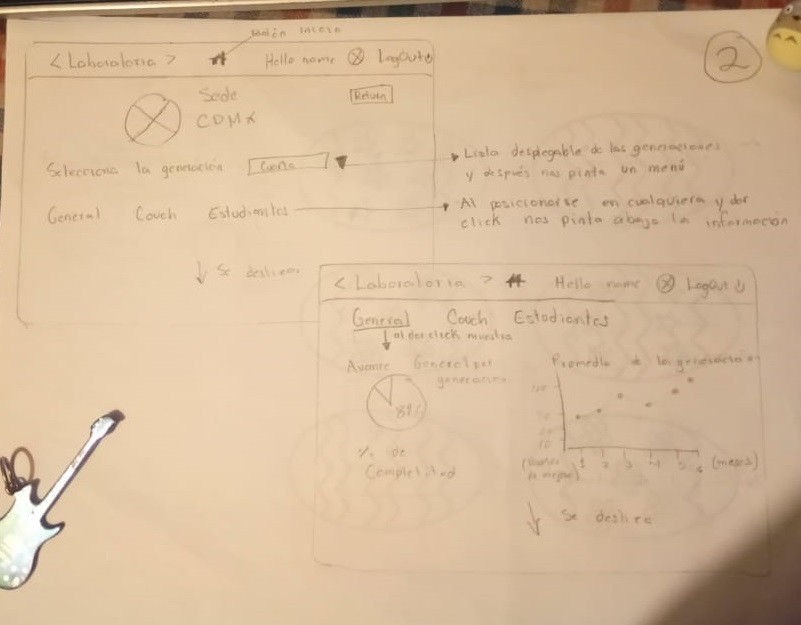 botón inicio
< Laboratoria > Hello name LogOut
2
Sede
CDMX
Return
Selecciona la generación
Lista desplegable de las generaciones
y después nos pinta un menú
General Couch Estudiantes
Al posicionarse en cualquiera y dar
click nos pinta abajo la información
Se desliza
< Laboratoria > Hello name LogOut
General Couch Estudiantes
al dar click muestra
Avance General por
generación
Promedio de la generación
% de
Completitud
1 2 3 4 5 6 (meses)
Se desliza